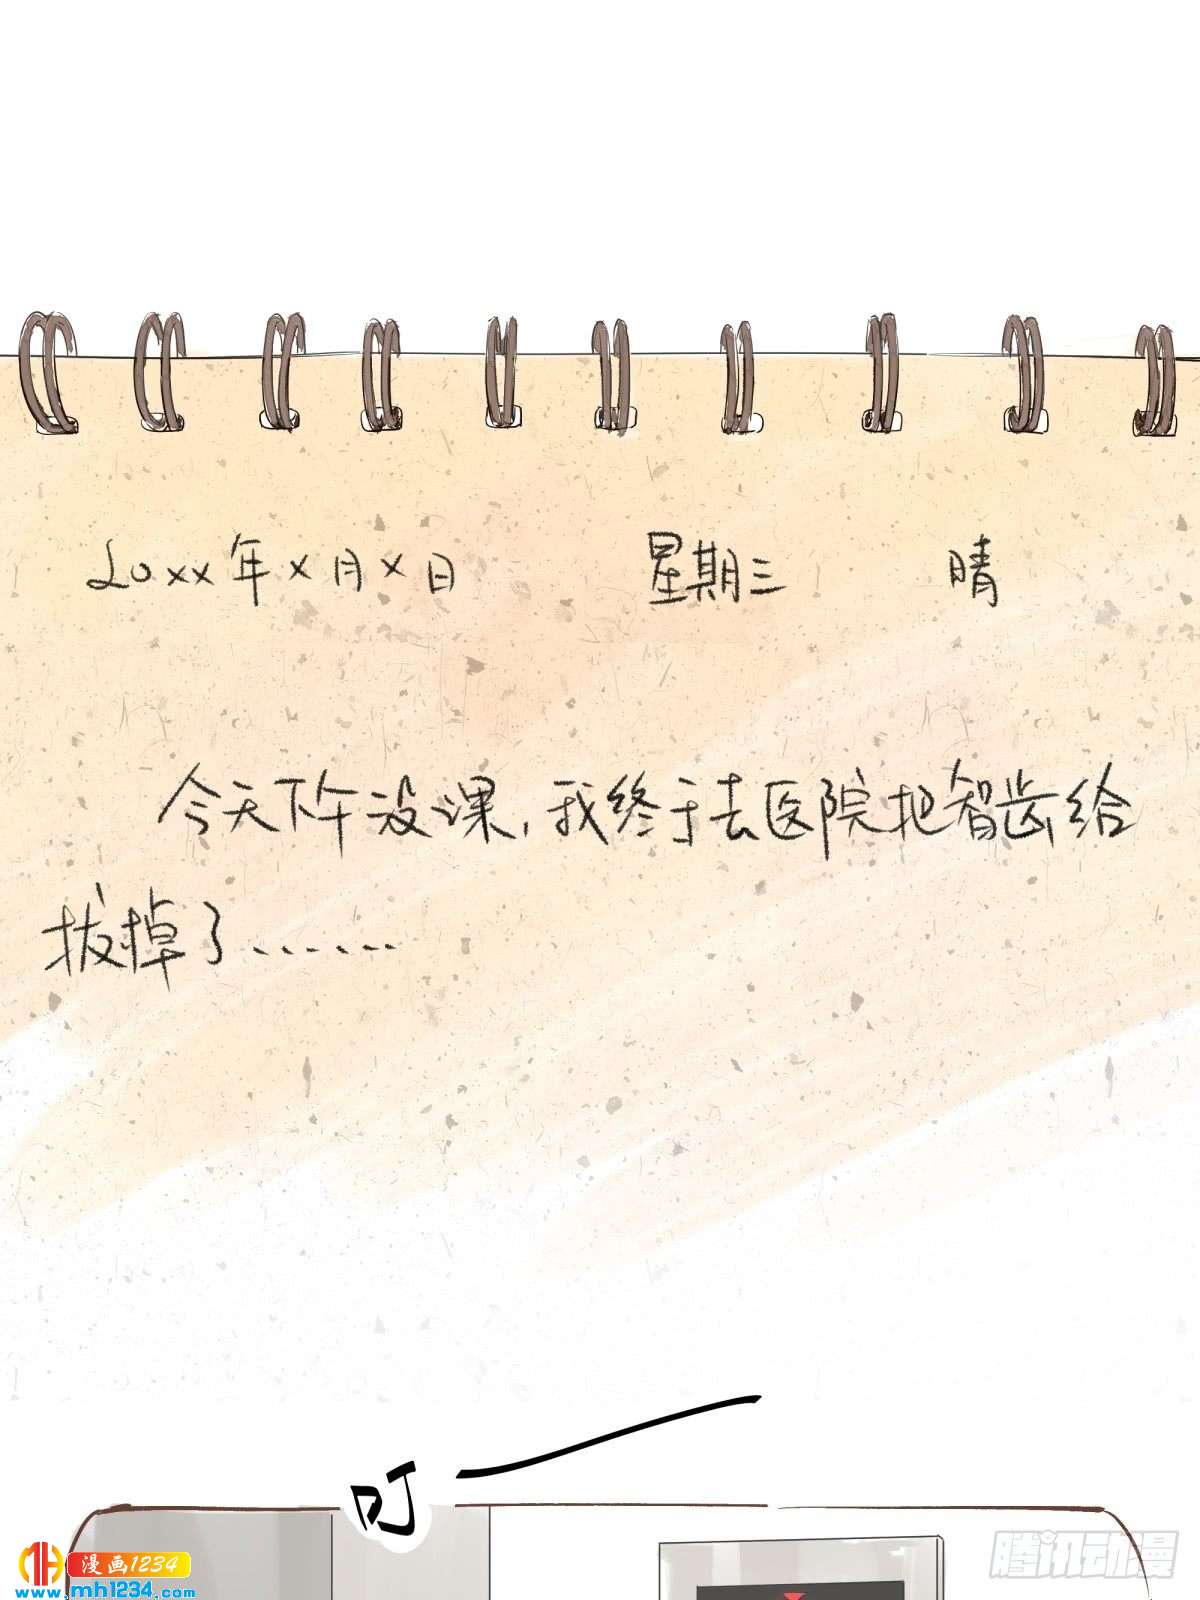 20xx年x月x日 星期三 晴
今天下午没课,我终于去医院把智齿给
拔掉了……
叮—
漫画1234
www.mh1234.com
腾讯动漫